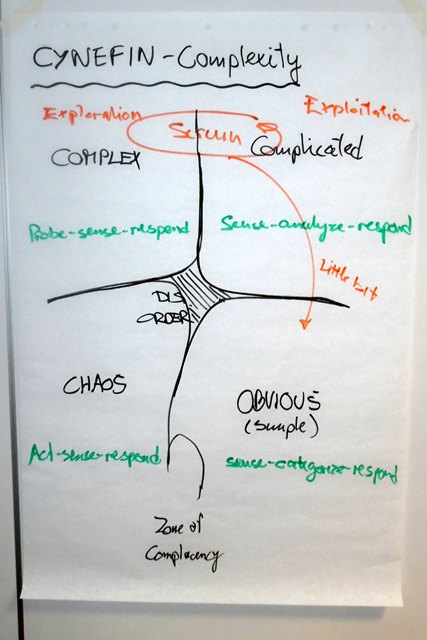 CYNEFIN - Complexity
Exploration
Exploitation
Scrum
COMPLEX
Complicated
Probe-sense-respond
Sense-analyze-respond
Little bit
DIS
ORDER
CHAOS
OBVIOUS
(simple)
Act-sense-respond
sense-categorize-respond
Zone of
Complacency